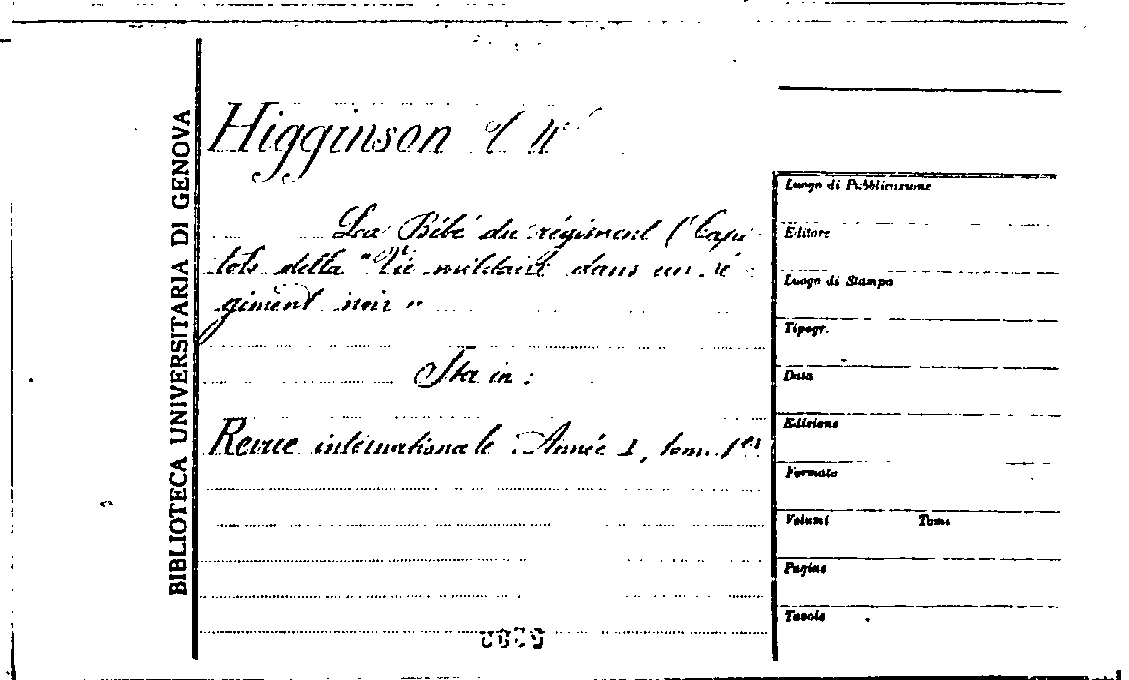 BIBLIOTECA UNIVERSITARIA DI GENOVA
Higginson
La Bébé du régiment (Capi
tolo della "Vie militaire dans un ré
giment noir"
Sta in:
Revue internationale Année 1, tom. 1er
Luogo di Pubblicazione
Editore
Luogo di Stampa
Tipogr.
Data
Edizione
Formato
Volumi Tomi
Pagine
Tavole